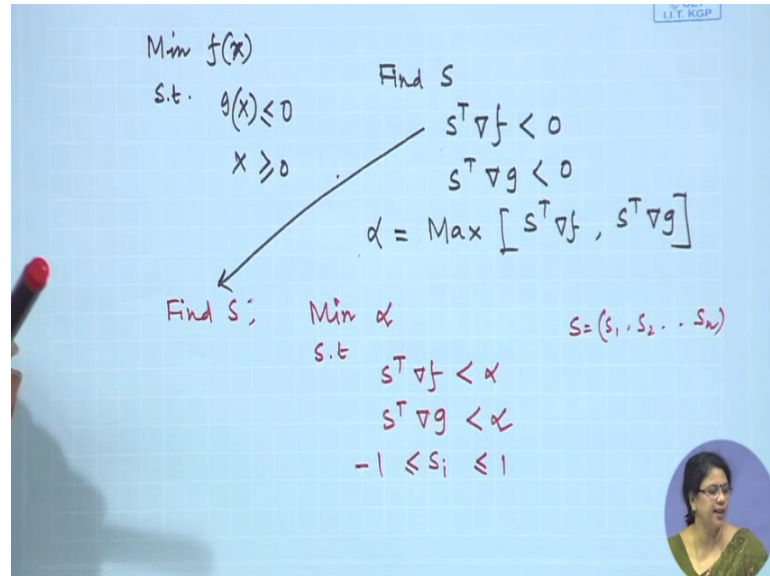 I.I.T. KGP
Min f(x)
s.t. g(x) ≤ 0
x ≥ 0
Find S
S^T ∇f < 0
S^T ∇g < 0
α = Max [ S^T ∇f , S^T ∇g ]
Find S; Min α
s.t
S^T ∇f < α
S^T ∇g < α
-1 ≤ S_i ≤ 1
S = (S_1, S_2 .. S_n)